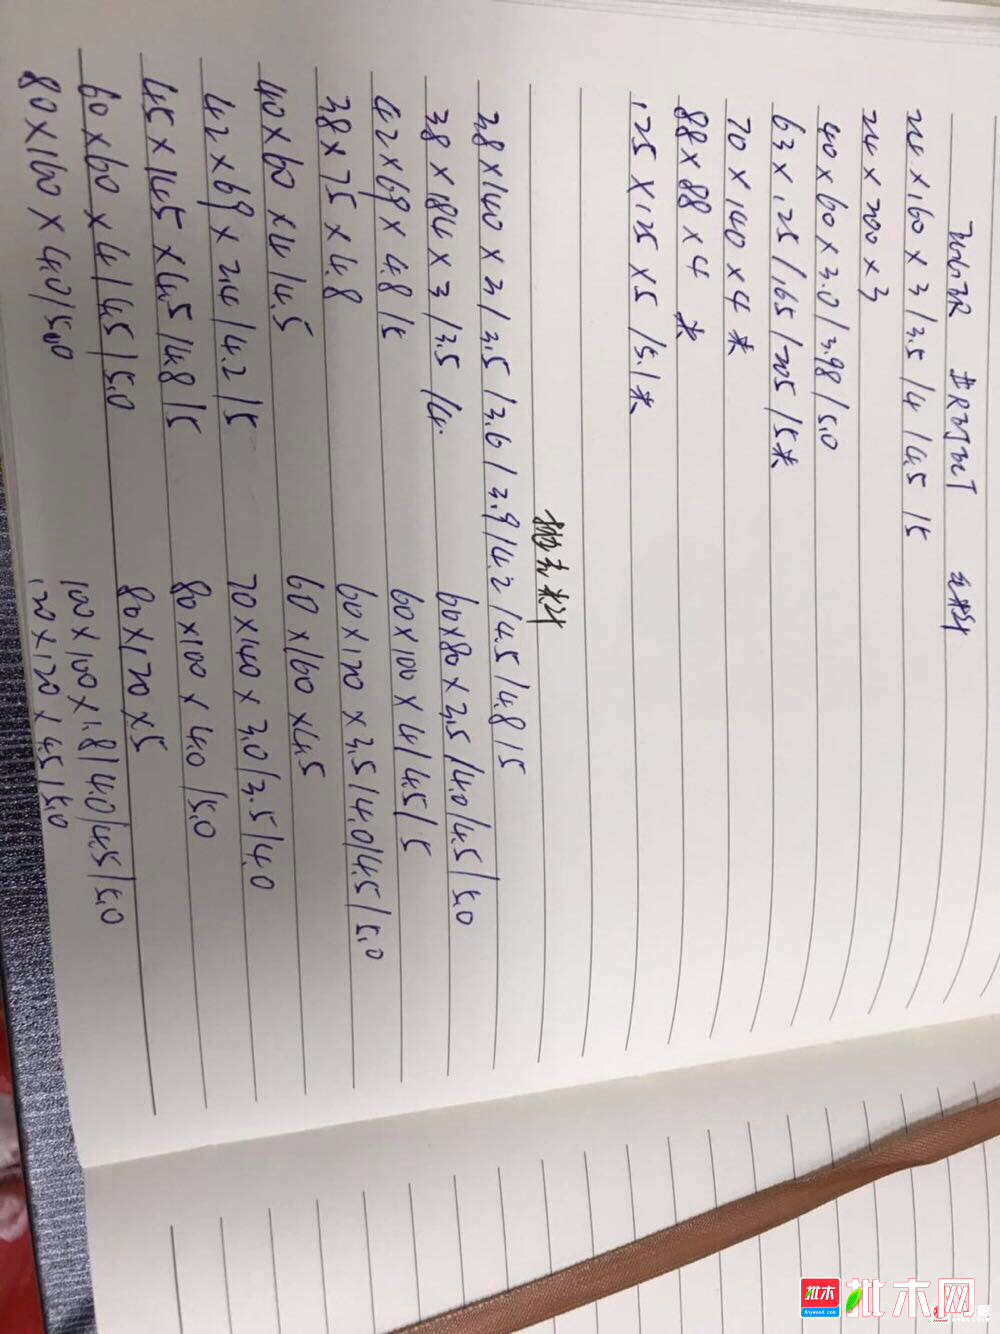 24×160×3/3.5/4/4.5/5
24×200×3
40×60×3.0/3.98/5.0
63×125/165/205/5米
70×140×4米
88×88×4米
125×125×5/5.1米
抛光料
38×140×3/3.5/3.6/3.9/4.2/4.5/4.8/5
38×184×3/3.5/4
42×69×4.8/5
38×75×4.8
40×60×4/4.5
42×69×2.4/4.2/5
45×145×4.5/4.8/5
60×60×4/4.5/5.0
80×160×4.0/5.00
60×80×2.5/4.0/4.5/5.0
60×100×4/4.5/5
60×120×3.5/4.0/4.5/5.0
60×160×4.5
70×140×3.0/3.5/4.0
80×100×4.0/5.0
80×120×5
100×100×1.8/4.0/4.5/5.0
120×120×4.5/5.0
批木
Anywood.com
批木网